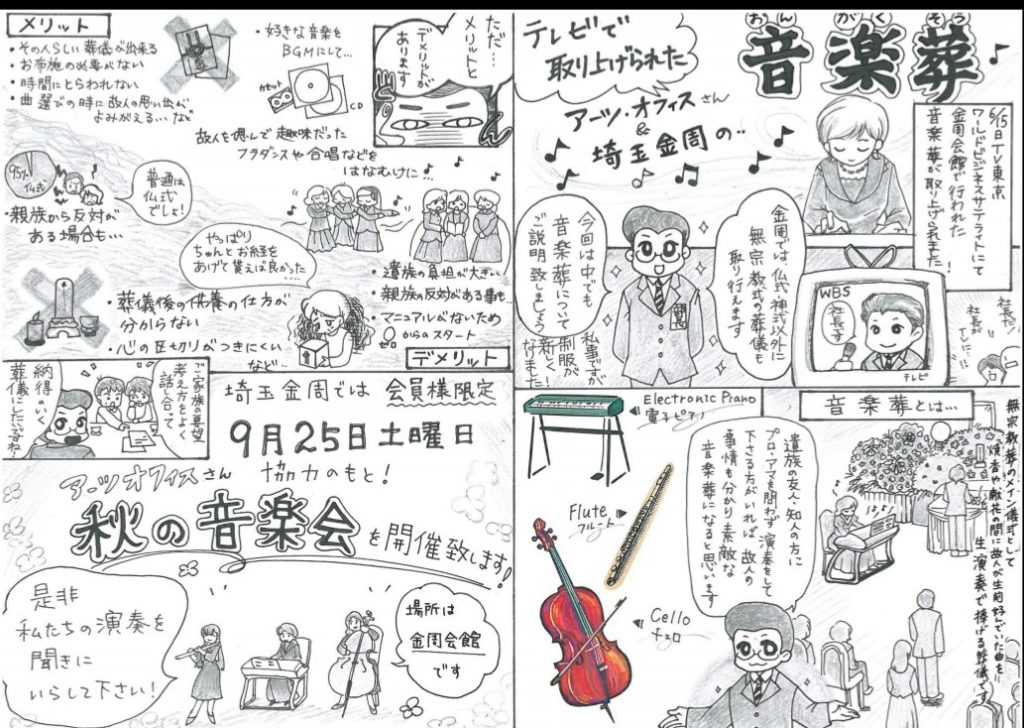 おんがくそう
音楽葬
テレビで
取り上げられた
アーツ・オフィスさん
&
埼玉金周の・・
6/15日TV東京
ワールドビジネスサテライトにて
金周会館で行われた
音楽葬が取り上げられました!
金周では、仏式神式以外に
無宗教式の葬儀も
取り行えます
今回は中でも
音楽葬について
ご説明致しましょう
私事ですが
制服が
新しく
なりました!
WBS
社長です
テレビ
社長が
TVに…
社長が
音楽葬とは…
無宗教葬のメイン儀式として
焼香や献花の間に故人が生前好んでいた曲を
生演奏で捧げる葬儀です
Electronic Piano
電子ピアノ
Flute
フルート
Cello
チェロ
遺族の友人・知人の方に
プロ・アマを問わず演奏をして
下さる方がいれば故人の
事情も分かり素敵な
音楽葬になると思います
メリット
・その人らしい葬儀が出来る
・お布施の必要がない
・時間にとらわれない
・曲選びの時に故人の思い出が、
よみがえる…など
・好きな音楽を
BGMにして…
カセット
CD
ただ…
メリットと
デメリットが
あります
故人を偲んで趣味だった
フラダンスや合唱などを
はなむけに…
95%
仏式
普通は
仏式
でしょ!
・親族から反対が
ある場合も…
やっぱり
ちゃんとお経を
あげて貰えば良かった…
・葬儀後の供養の仕方が
分からない
・心の区切りがつきにくい
など…
・遺族の負担が大きい
・親族の反対がある事も…
・マニュアルがないため
ゼロ
0からのスタート
デメリット
ご家族の要望
考え方をよく
話し合って
納得のいく
葬儀にしたいですね
埼玉金周では会員様限定
9月25日土曜日
アーツオフィスさん
協力のもと!
秋の音楽会を開催致します!
是非
私たちの演奏を
聞きに
いらして下さい!
場所は
金周会館
です